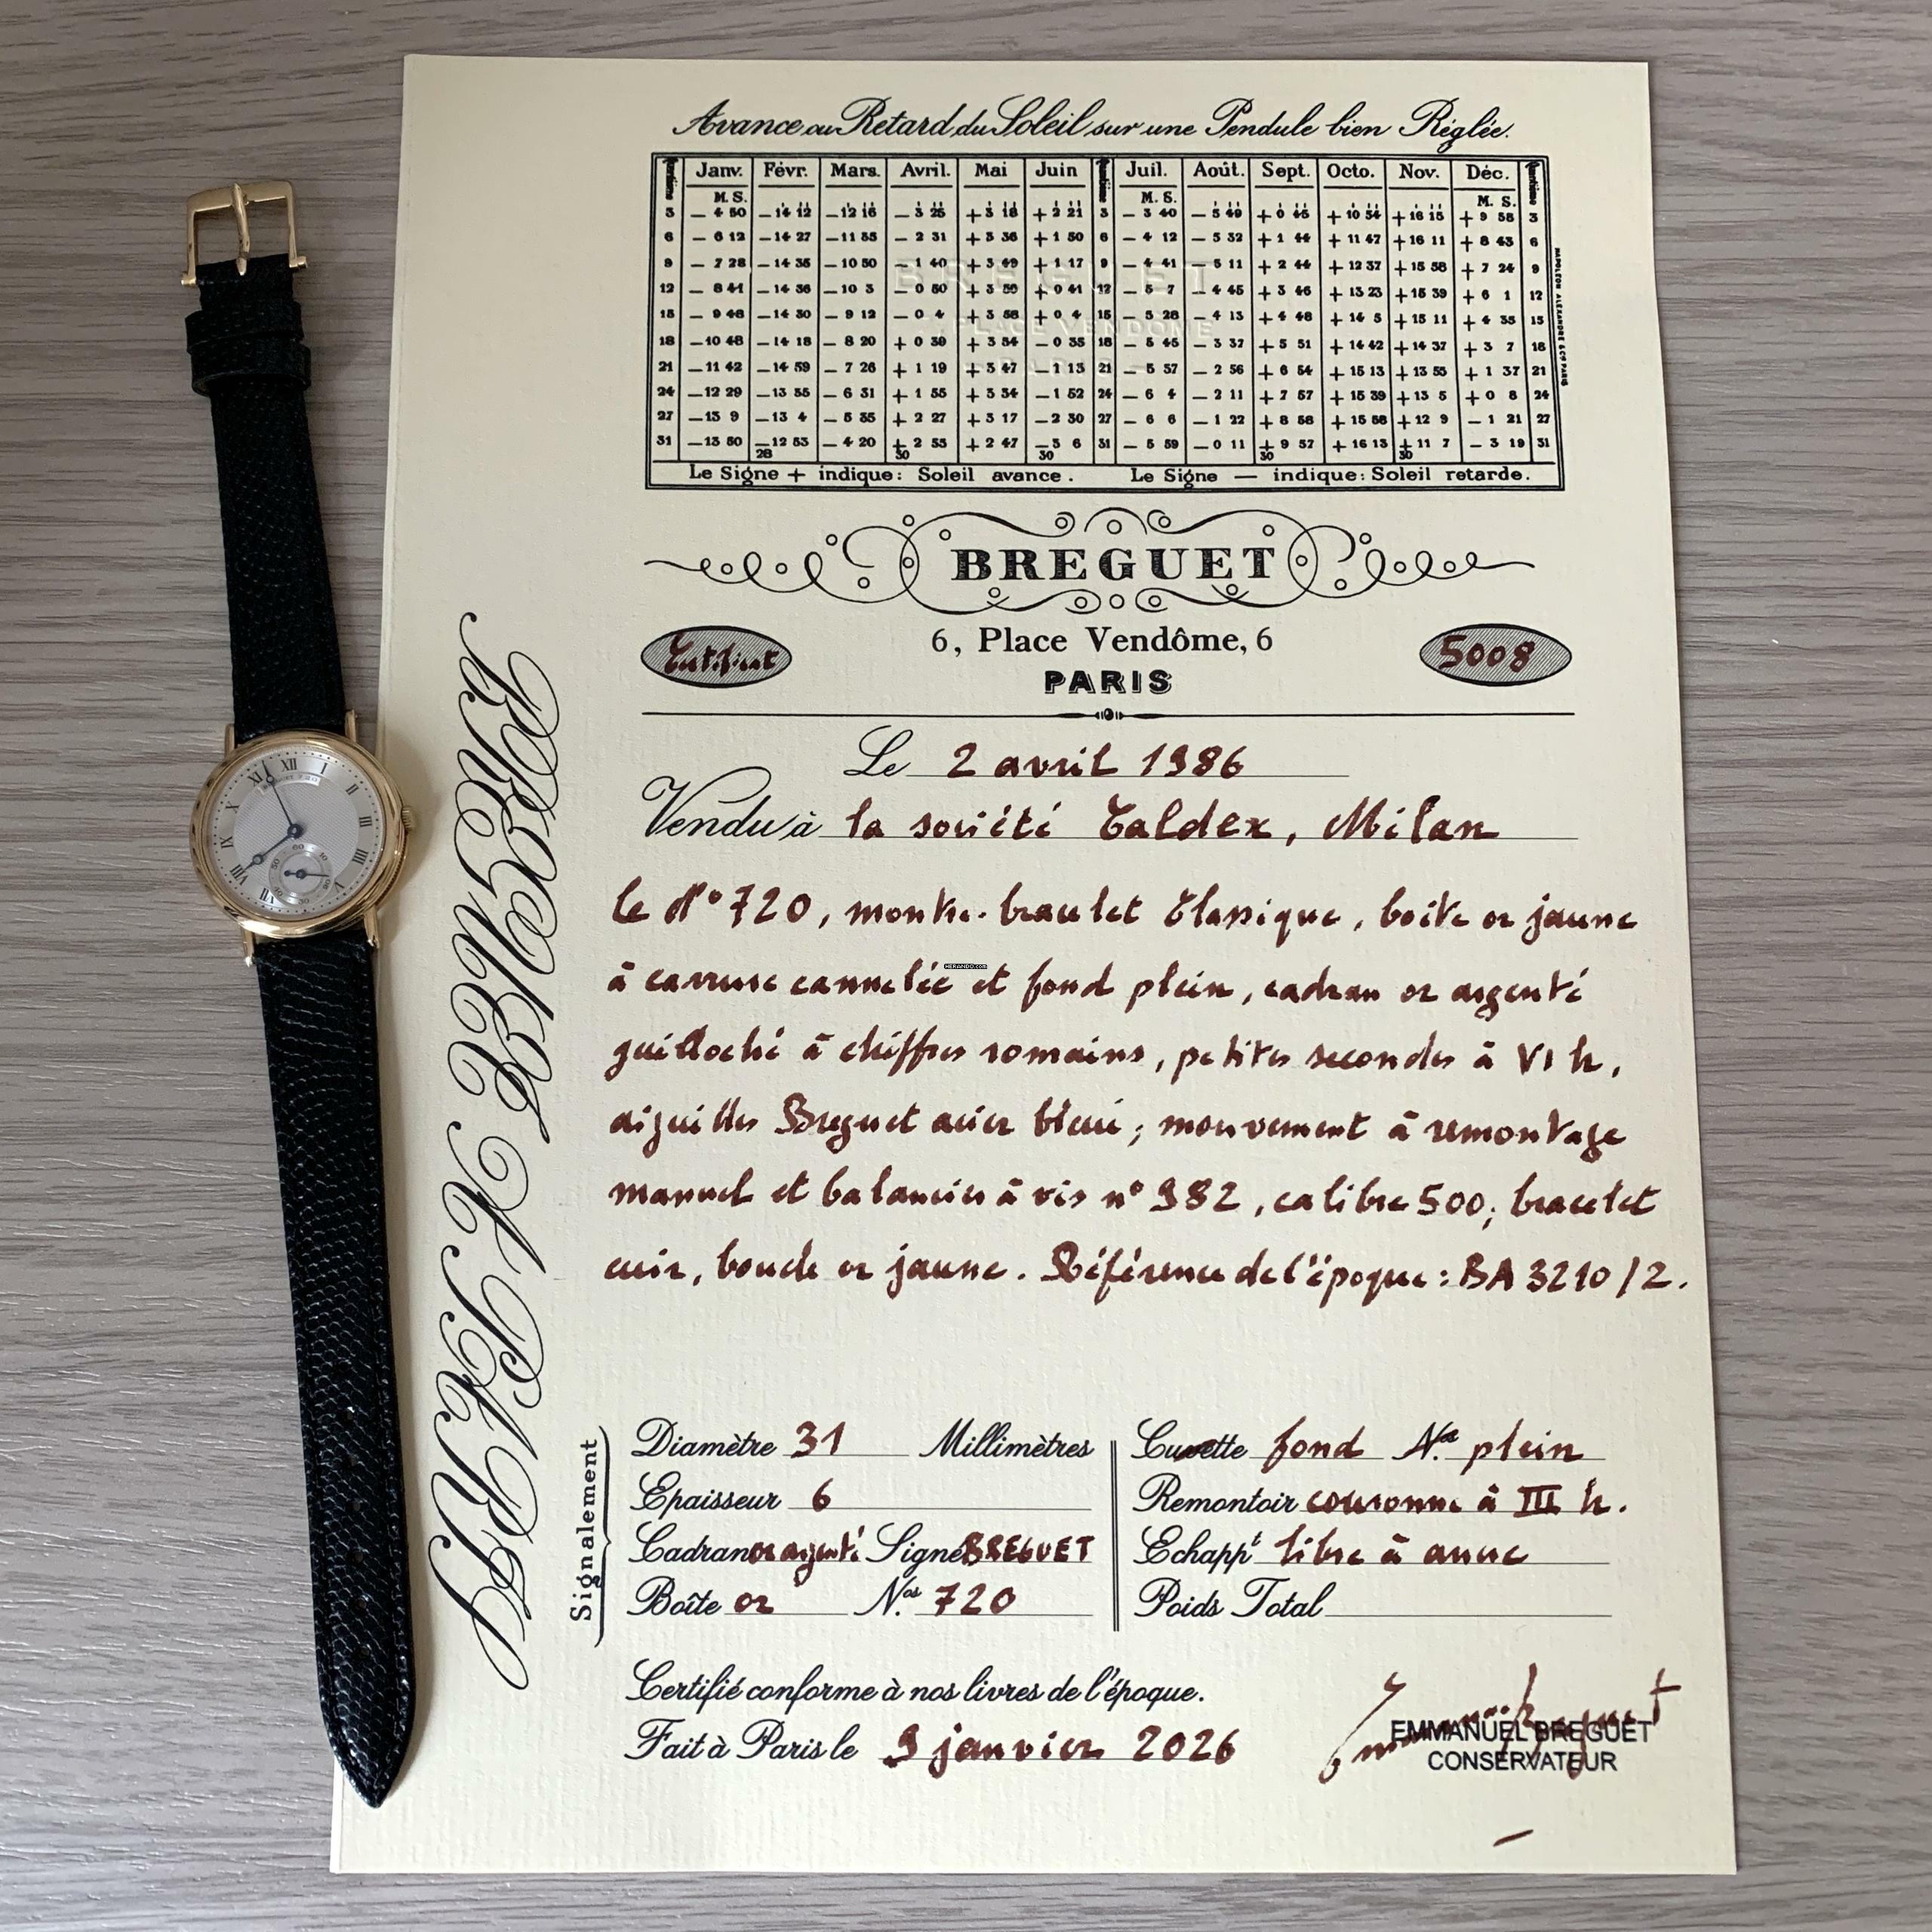 Avance ou Retard du Soleil sur une Pendule bien Réglée.
Quantième Janv. Févr. Mars. Avril. Mai Juin Quantième Juil. Août. Sept. Octo. Nov. Déc. Quantième
M. S. M. S. M. S.
3 — 4 50 — 14 12 — 12 16 — 3 25 + 3 18 + 2 21 3 — 3 40 — 5 49 + 0 45 + 10 54 + 16 15 + 9 58 3
6 — 6 12 — 14 27 — 11 35 — 2 31 + 3 36 + 1 50 6 — 4 12 — 5 32 + 1 44 + 11 47 + 16 11 + 8 43 6
9 — 7 28 — 14 35 — 10 50 — 1 40 + 3 49 + 1 17 9 — 4 41 — 5 11 + 2 44 + 12 37 + 15 58 + 7 24 9
12 — 8 41 — 14 36 — 10 3 — 0 50 + 3 59 + 0 41 12 — 5 7 — 4 45 + 3 46 + 13 23 + 15 39 + 6 1 12
15 — 9 48 — 14 30 — 9 12 — 0 4 + 3 58 + 0 4 15 — 5 28 — 4 13 + 4 48 + 14 5 + 15 11 + 4 35 15
18 — 10 48 — 14 18 — 8 20 + 0 39 + 3 54 — 0 35 18 — 5 45 — 3 37 + 5 51 + 14 42 + 14 37 + 3 7 18
21 — 11 42 — 14 59 — 7 26 + 1 19 + 3 47 — 1 13 21 — 5 57 — 2 56 + 6 54 + 15 13 + 13 55 + 1 37 21
24 — 12 29 — 13 35 — 6 31 + 1 55 + 3 34 — 1 52 24 — 6 4 — 2 11 + 7 57 + 15 39 + 13 5 + 0 8 24
27 — 13 9 — 13 4 — 5 35 + 2 27 + 3 17 — 2 30 27 — 6 6 — 1 22 + 8 58 + 15 58 + 12 9 — 1 21 27
31 — 13 50 — 12 53 — 4 20 + 2 53 + 2 47 — 3 6 31 — 5 59 — 0 11 + 9 57 + 16 13 + 11 7 — 3 19 31
28 30 30 30 30
Le Signe + indique: Soleil avance. Le Signe — indique: Soleil retarde.
NAPOLÉON ALEXANDRE & Cie PARIS
BREGUET
PLACE VENDOME
BREGUET
Certificat 6, Place Vendôme, 6 5008
PARIS
Le 2 avril 1986
Vendu à la société Taldex, Milan
le N° 720, montre-bracelet Classique, boîte or jaune
à carrure cannelée et fond plein, cadran or argenté
guilloché à chiffres romains, petites secondes à VI h,
aiguilles Breguet acier bleui; mouvement à remontage
manuel et balancier à vis n° 982, calibre 500; bracelet
cuir, boucle or jaune. Référence de l'époque: BA 3210/2.
Signalement
Diamètre 31 Millimètres Cuvette fond Nos plein
Epaisseur 6 Remontoir couronne à III h.
Cadran or argenté Signé BREGUET Echappt libre à ancre
Boîte or Nos 720 Poids Total
Certifié conforme à nos livres de l'époque.
Fait à Paris le 9 janvier 2026
Emmanuel Breguet
EMMANUEL BREGUET
CONSERVATEUR
BREGUET A PARIS
XII I II III IIII V VI VII VIII IX X XI
60 10 20 30 40 50
HERANDO.com